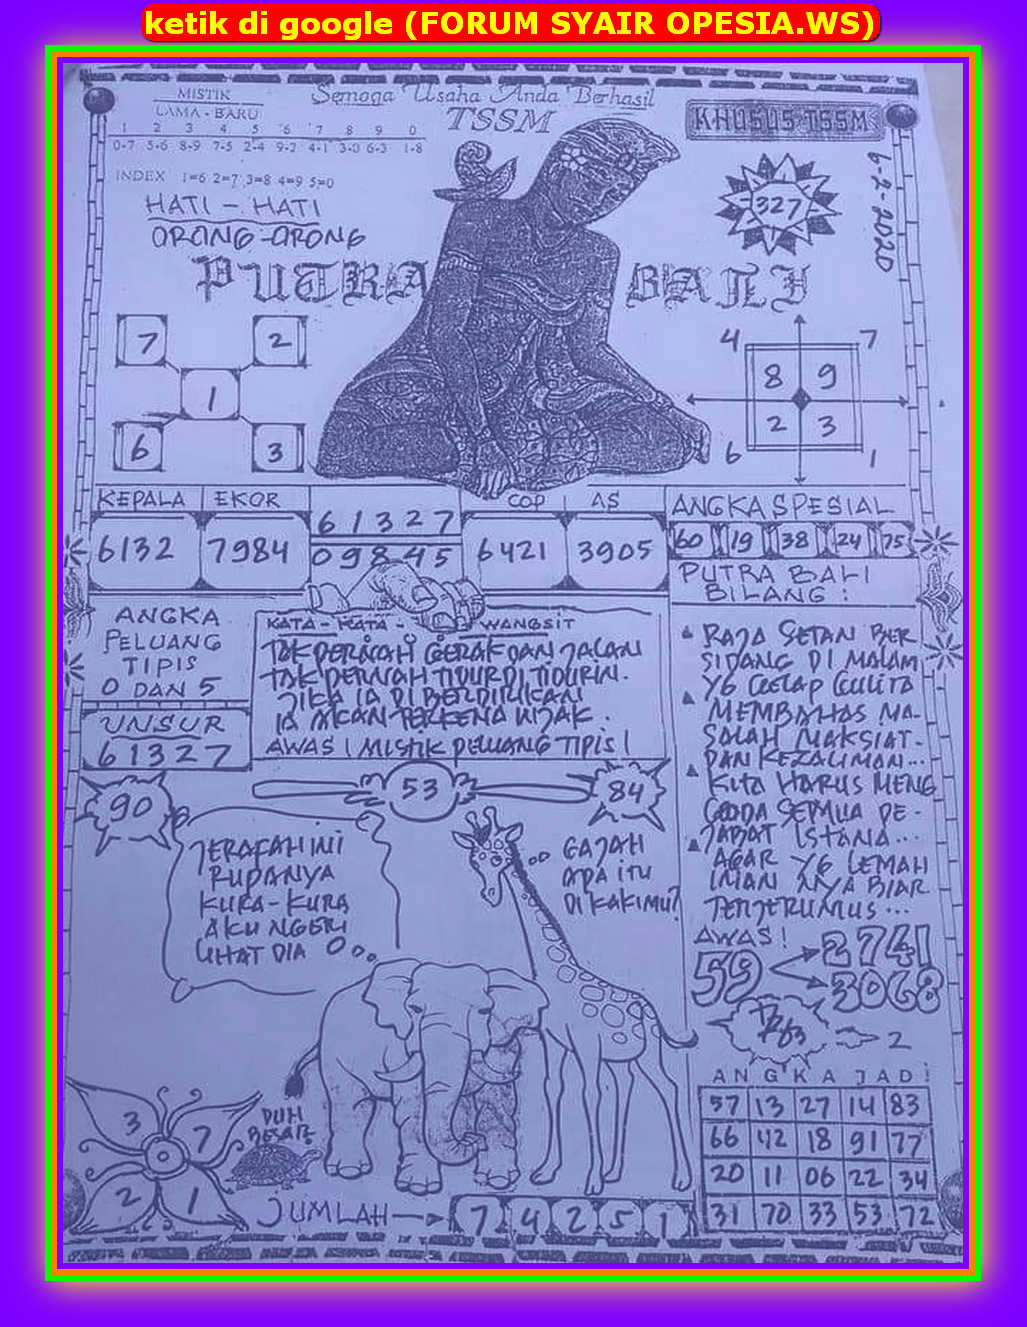 ketik di google (FORUM SYAIR OPESIA.WS)
Semoga Usaha Anda Berhasil
TSSM
KHUSUS TSSM
MISTIK
LAMA - BARU
1 2 3 4 5 6 7 8 9 0
0-7 5-6 8-9 7-5 2-4 9-2 4-1 3-0 6-3 1-8
INDEX 1=6 2=7 3=8 4=9 5=0
HATI - HATI
ORANG-ORONG
327
6-2-2020
PUTRA BALI
7 2
1
6 3
4 7
8 9
2 3
6 1
KEPALA EKOR
6132 7984
61327
09845
COP AS
6421 3905
ANGKA SPESIAL
60 19 38 24 75
PUTRA BALI
BILANG :
ANGKA
PELUANG
TIPIS
0 DAN 5
UNSUR
61327
KATA - KATA - WANGSIT
TAK PERNAH GERAK DAN JALAN
TAK PERNAH TIDUR DI TIDURIN.
JIKA IA DI BERDIRIKAN
IA AKAN TERKENA
AWAS ! MISTIK PELUANG TIPIS !
RAJA SETAN BER
SIDANG DI MALAM
YG GELAP GULITA
MEMBAHAS MA-
SALAH MAKSIAT-
DAN KEZALIMAN...
KITA HARUS MENG
GODA SEMUA PE-
JABAT ISTANA...
AGAR YG LEMAH
IMAN NYA BIAR
TERJERUMUS...
AWAS!
59 2741
3068
2
90 53 84
JERAFAH INI
RUPANYA
KURA-KURA
AKU NGERI
LIHAT DIA
GAJAH
APA ITU
DI KAKIMU?
3 7
2 1
DUH
BESAR
JUMLAH
7 4 2 5 1
ANGKA JADI
57 13 27 14 83
66 42 18 91 77
20 11 06 22 34
31 70 33 53 72